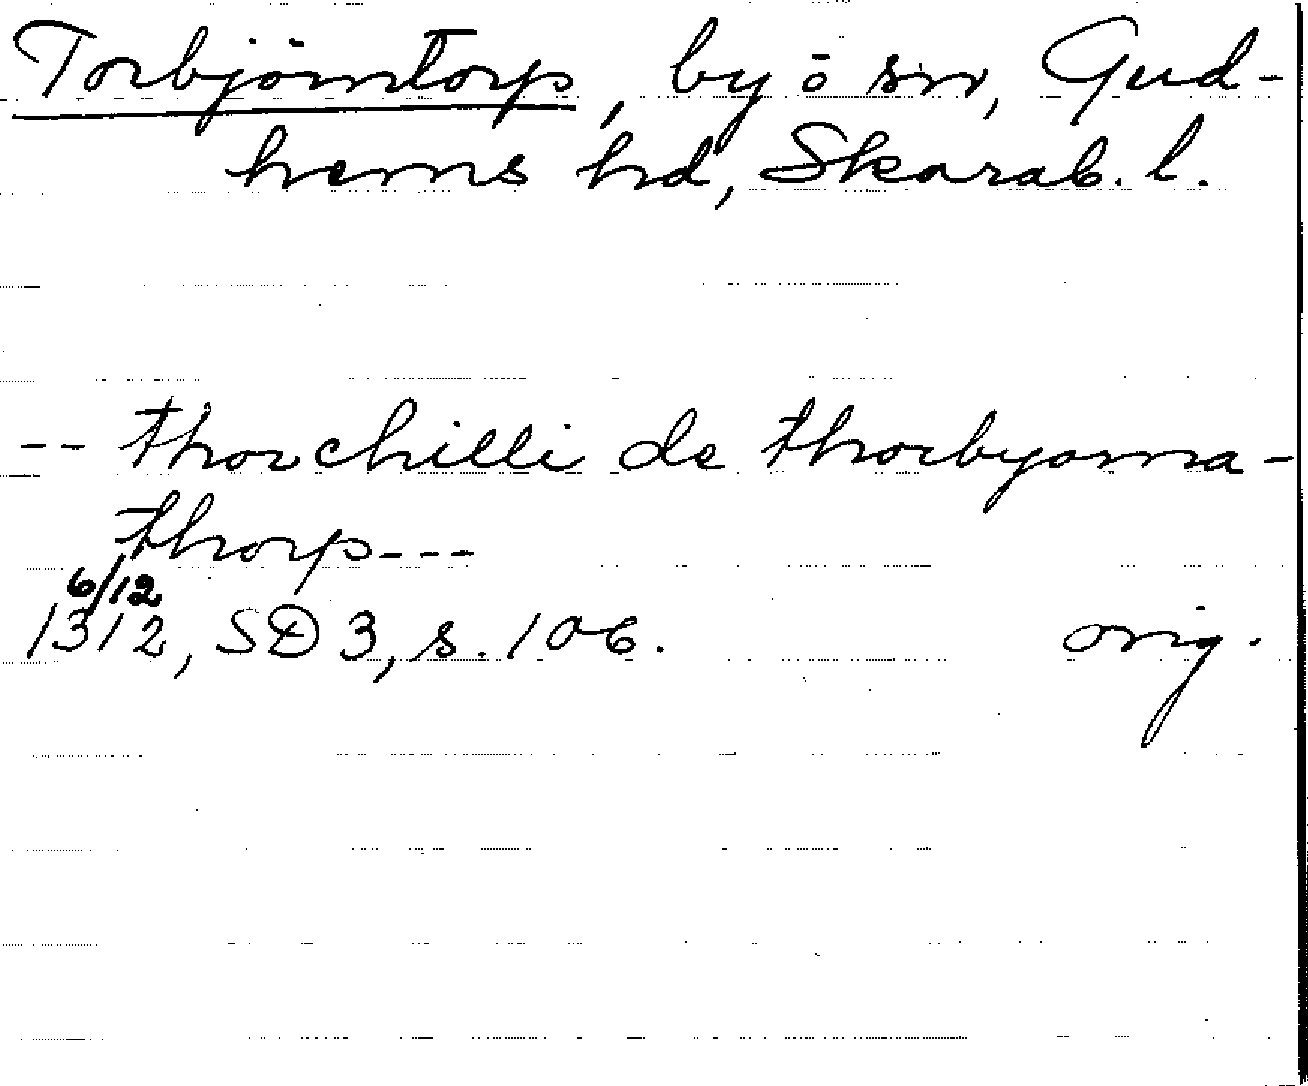 Torbjörntorp, by ō sn, Gud-
hems hd, Skarab. l.
-- thorchilli de thorbyorna-
thorp---
6/12
1312, SD 3, s. 106. orig.